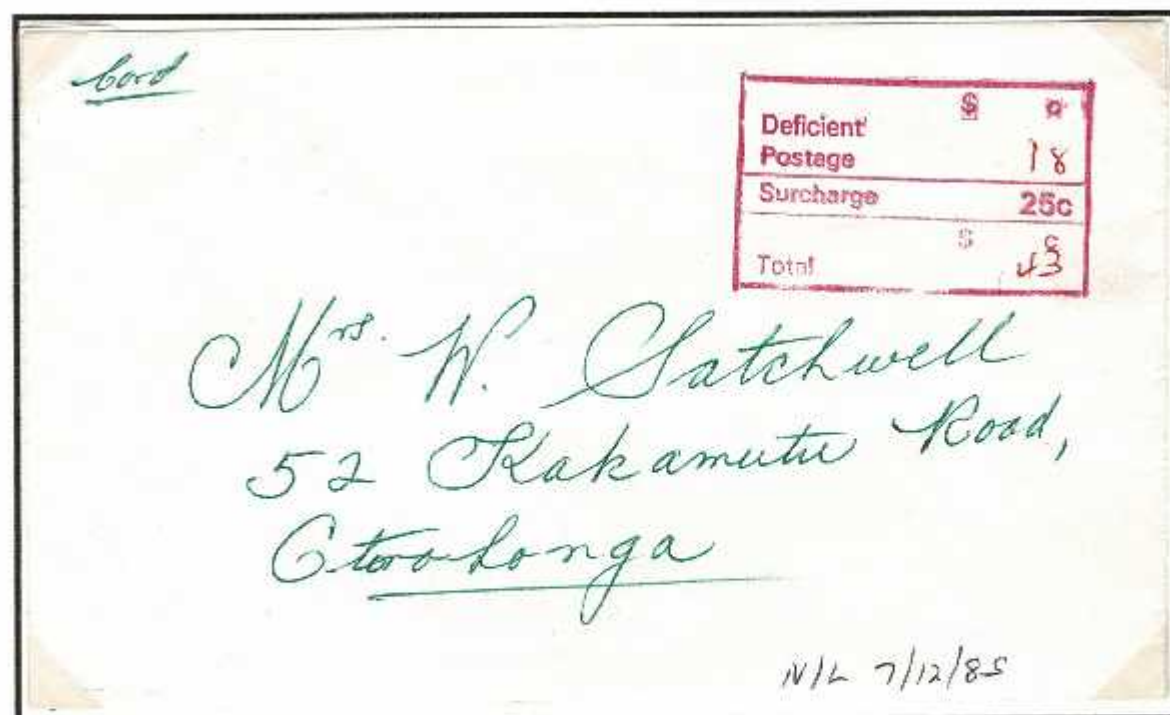 Card
$ c
Deficient
Postage 18
Surcharge 25c
$ c
Total 43
Mrs. W. Satchwell
52 Kakamutu Road,
Otorohonga
N/L 7/12/85